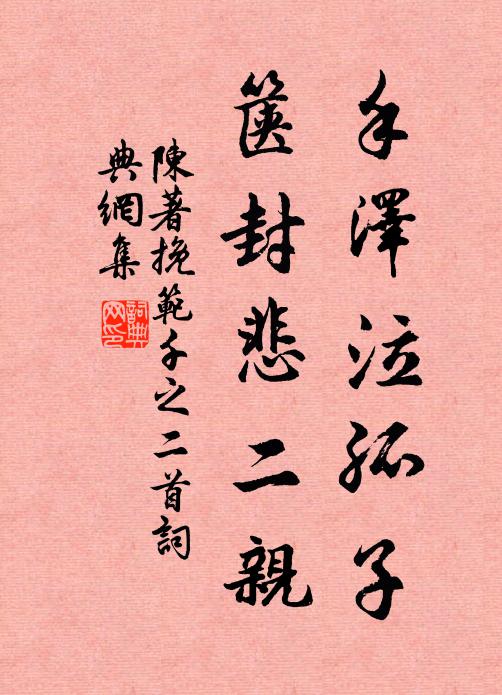 手澤泣孤子
篋封悲二親
陳著挽範千之二首詞
典網集
詞典
网印